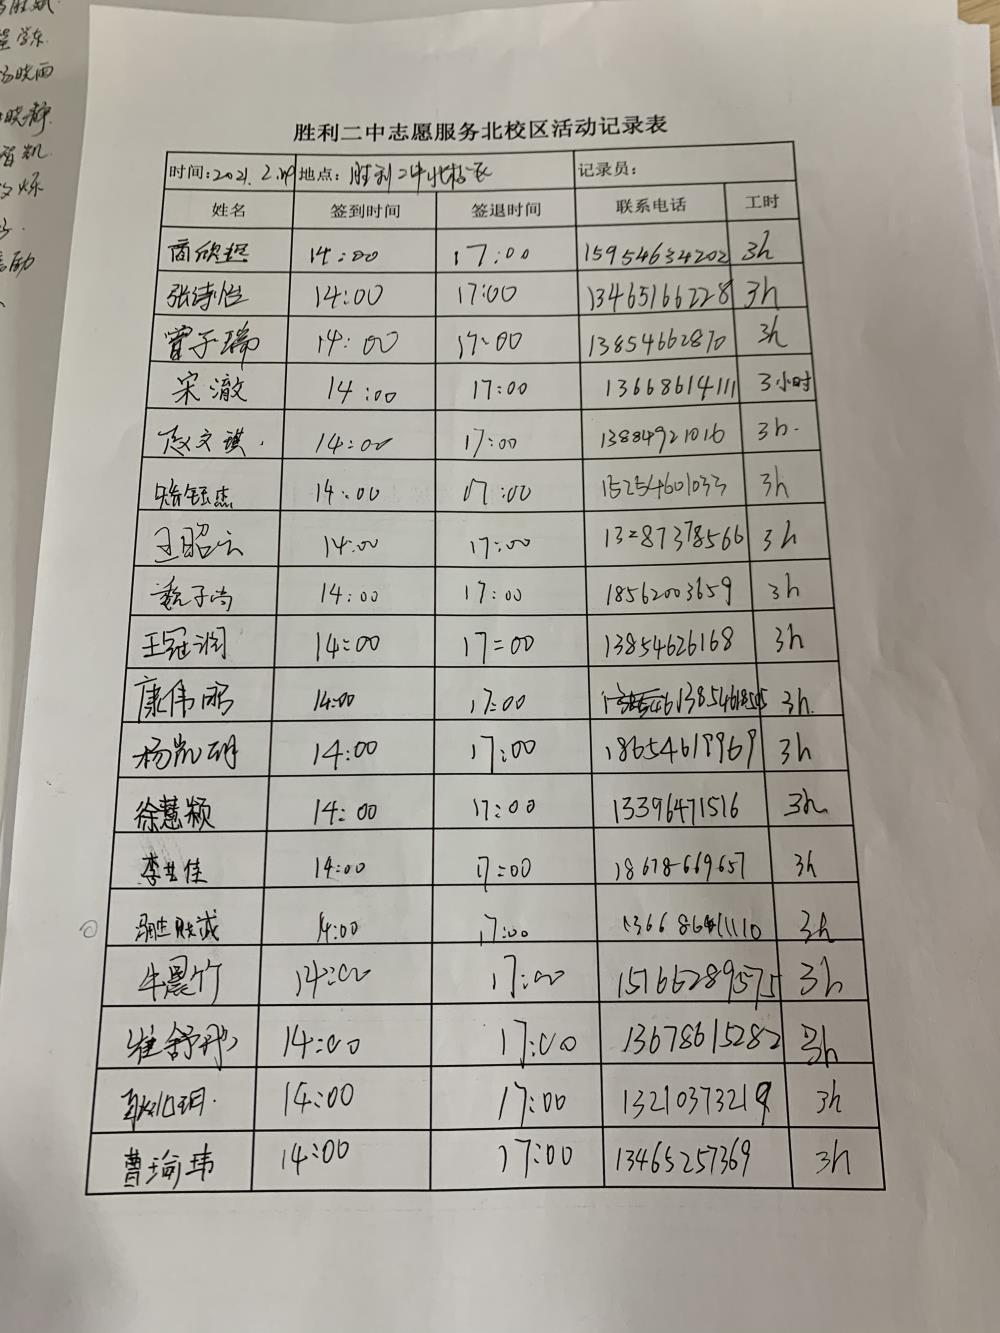 胜利二中志愿服务北校区活动记录表
时间:2021.2. 地点: 胜利二中北校区 记录员:
姓名 签到时间 签退时间 联系电话 工时
商欣 14:00 17:00 15954634202 3h
张诗怡 14:00 17:00 13465166228 3h
曹子瑞 14:00 17:00 13854662870 3h
宋澈 14:00 17:00 13668614111 3小时
赵文琪. 14:00 17:00 13884921016 3h.
张钰杰 14:00 07:00 15254601033 3h
王昭云 14:00 17:00 13287378566 3h
魏子尚 14:00 17:00 18562003659 3h
王冠润 14:00 17:00 13854626168 3h
康伟鹏 14:00 17:00 3h.
杨凯玥 14:00 17:00 18654619969 3h
徐慧颖 14:00 17:00 13396471516 3h
李其佳 14:00 17:00 18678669657 3h
14:00 17:00 3h
牛晨竹 14:00 17:00 15166289575 3h
崔舒彤 14:00 17:00 13678615282 3h
14:00 17:00 13210373219 3h
曹瑜玮 14:00 17:00 13465257369 3h